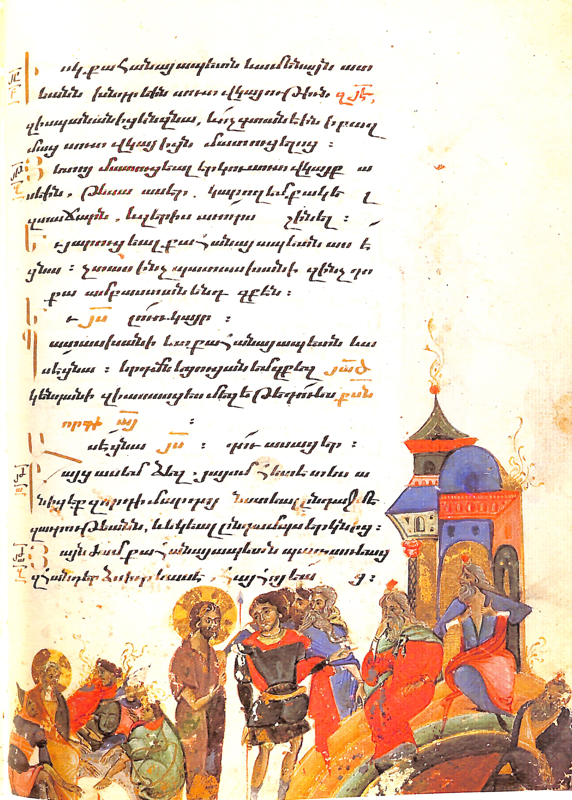 Իսկ քահանայապետքն եւ ամենայն ատ
եանն խնդրէին սուտ վկայութիւն զՅէ,
զի սպանանիցեն զնա, եւ ոչ գտանէին ի բազ
մաց սուտ վկայիցն մատուցելոց :
Յետոյ մատուցեալ երկու սուտ վկայք ա
սեին, Թե սա ասէր. կարող եմ քակել
զտաճարն, եւ զերիս աւուրս շինել :
Եւ յարուցեալ քահանայապետն ասէ
ցնա : չտաս ինչ պատասխանի զինչ դո
քա ամբաստանեն զքէն :
Եւ յս լուռ կայր :
Պատասխանի ետ քահանայապետն եւ ա
սէ ցնա : երդմնեցուցանեմ զքեզ յած
կենդանի զի ասասցես մեզ եթե դու ես քսն
որդի այ :
Ասէ ցնա յս : դու ասացեր :
Բայց ասեմ ձեզ. յայսմ հետէ տեսա
նիցեք զորդի մարդոյ նստեալ ընդ աջմե
զաւրութեանն, եւ եկեալ ընդ ամպս երկնից :
Յայնժամ քահանայապետն պատառեաց
զհանդերձս իւր եւ ասէ, հայհոյեաց :